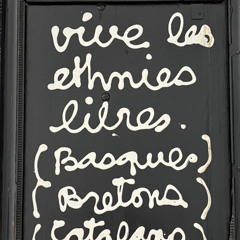 vive les
ethnies
libres.
(Basques)
(Bretons)
(Catalans)